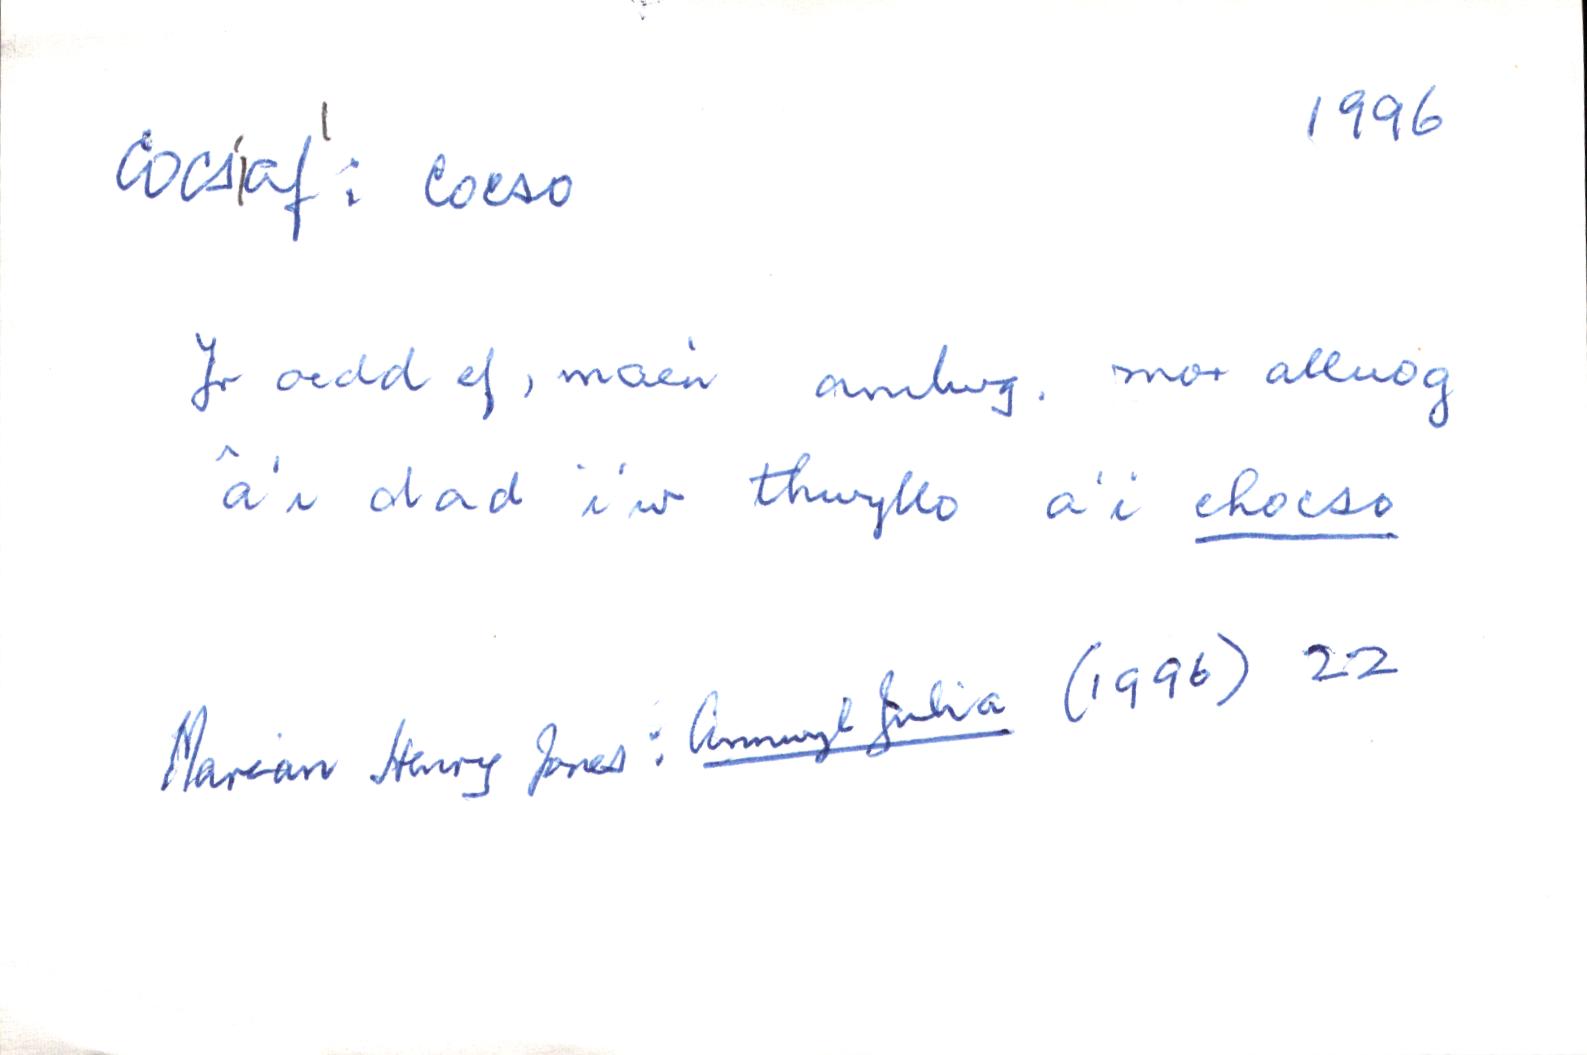 1996
cocsiaf¹: cocso
Yr oedd ef, mae'n amlwg, mor alluog
â'i dad i'w thwyllo a'i chocso
Marian Henry Jones: Annwyl Julia (1996) 22